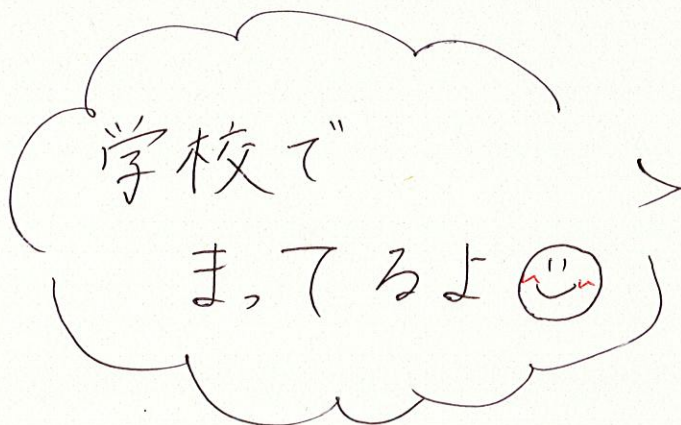 学校で
まってるよ